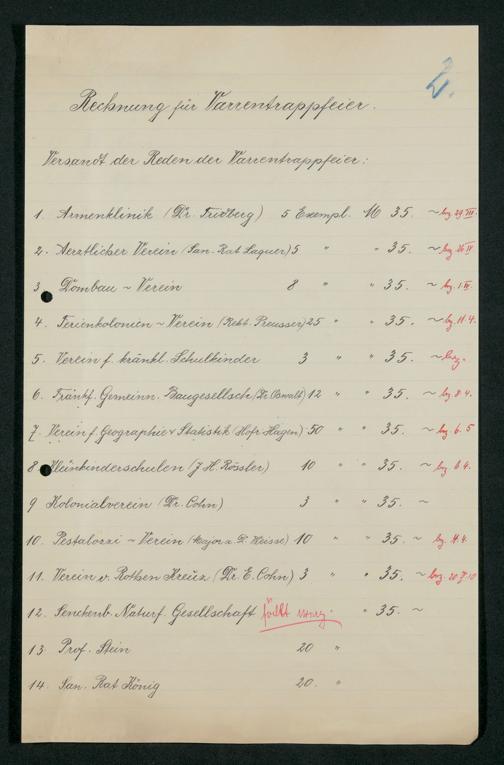 2.
Rechnung für Varrentrappfeier.
Versandt der Reden der Varrentrappfeier:
1. Armenklinik (Dr. Fridberg) 5 Exempl. M 35. ~ bez 29 III.
2. Aerztlicher Verein (San. Rat Laquer) 5 " " 35. ~ bez 26 IV
3 Dombau ~ Verein 8 " " 35. ~ bez. 1 III.
4. Ferienkolonien ~ Verein (Rekt. Preusser) 25 " " 35. ~ bez. 11.4.
5. Verein f. kränkl. Schulkinder 3 " " 35. ~ bez.
6. Frankf. Gemeinn. Baugesellsch. (Dr. Oswalt) 12 " " 35. ~ bez. 8 4.
7. Verein f. Geographie & Statistik (Hofr. Hagen) 50 " " 35. ~ bez. 6. 5
8 Kleinkinderschulen (J. H. Rössler) 10 " " 35. ~ bez 6 4.
9 Kolonialverein (Dr. Cohn) 3 " " 35. ~
10. Pestalozzi ~ Verein (Major a. D. Weisse) 10 " " 35. ~ bez. 4.
11. Verein v. Rothen Kreuz (Dr. E. Cohn) 3 " " 35. ~ bez. 20. 10
12. Senckenb. Naturf. Gesellschaft fällt weg. " 35. ~
13 Prof. Stein 20 "
14. San. Rat König 20. "